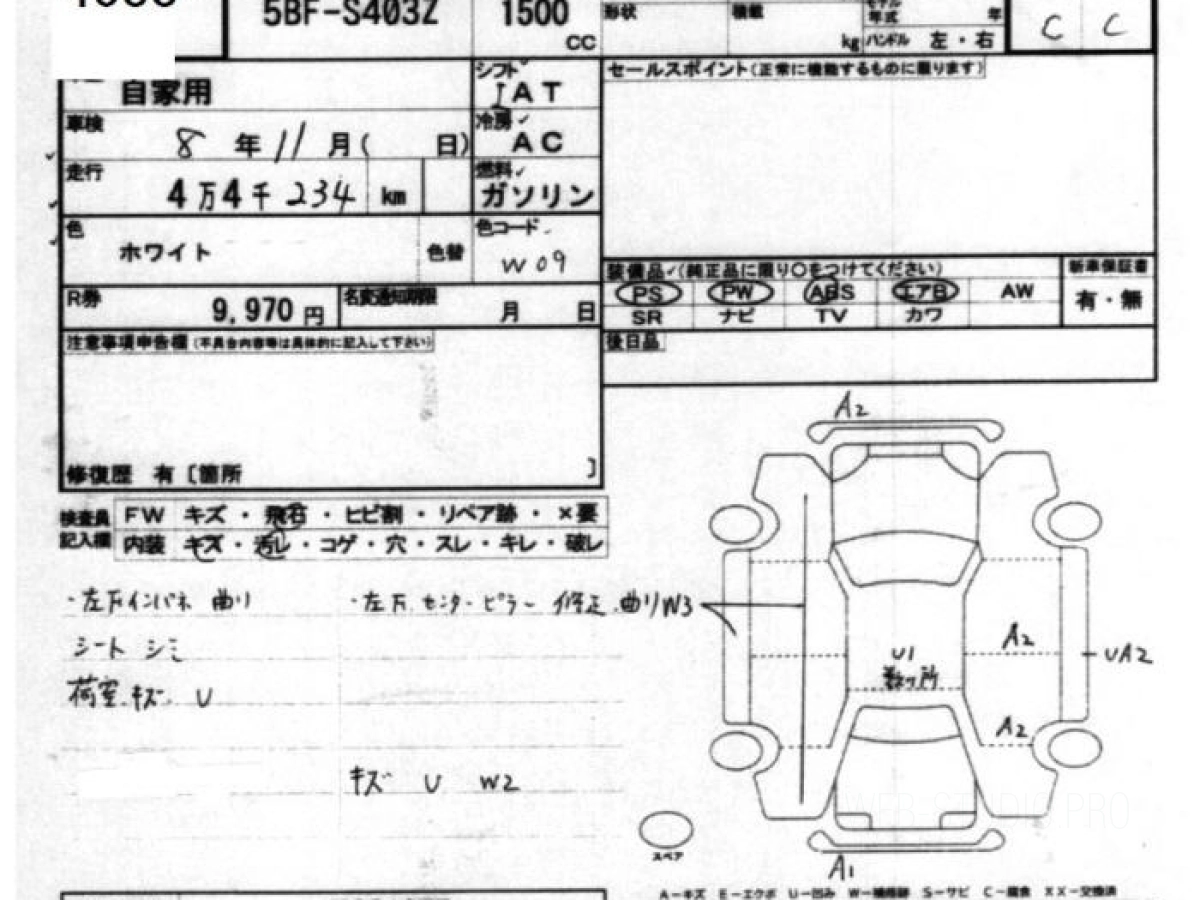 5BF-S403Z 1500 CC
形状 積載 kg
年式 年
ハンドル 左・右
C C
自家用
シフト
I AT
車検 8年11月( 日)
冷房 AC
走行 4万4千234 km
燃料 ガソリン
色 ホワイト 色替
色コード W09
R券 9,970円
名変通知期限 月 日
セールスポイント(正常に機能するものに限ります)
装備品(純正品に限り○をつけてください)
PS PW ABS エアB AW
SR ナビ TV カワ
新車保証書
有・無
後日品
注意事項申告欄(不具合内容等は具体的に記入して下さい)
修復歴 有〔箇所 〕
検査員
記入欄
FW キズ・飛石・ヒビ割・リペア跡・×要
内装 キズ・汚レ・コゲ・穴・スレ・キレ・破レ
・左下インパネ 曲り
・左右センターピラー 修正 曲り W3
シート シミ
荷室 キズ U
キズ U W2
A2
U1
数ヶ所
A2
UA2
A2
A1
スペア
WEB STUDIO PRO
A-キズ E-エクボ U-凹み W-補修跡 S-サビ C-腐食 XX-交換済